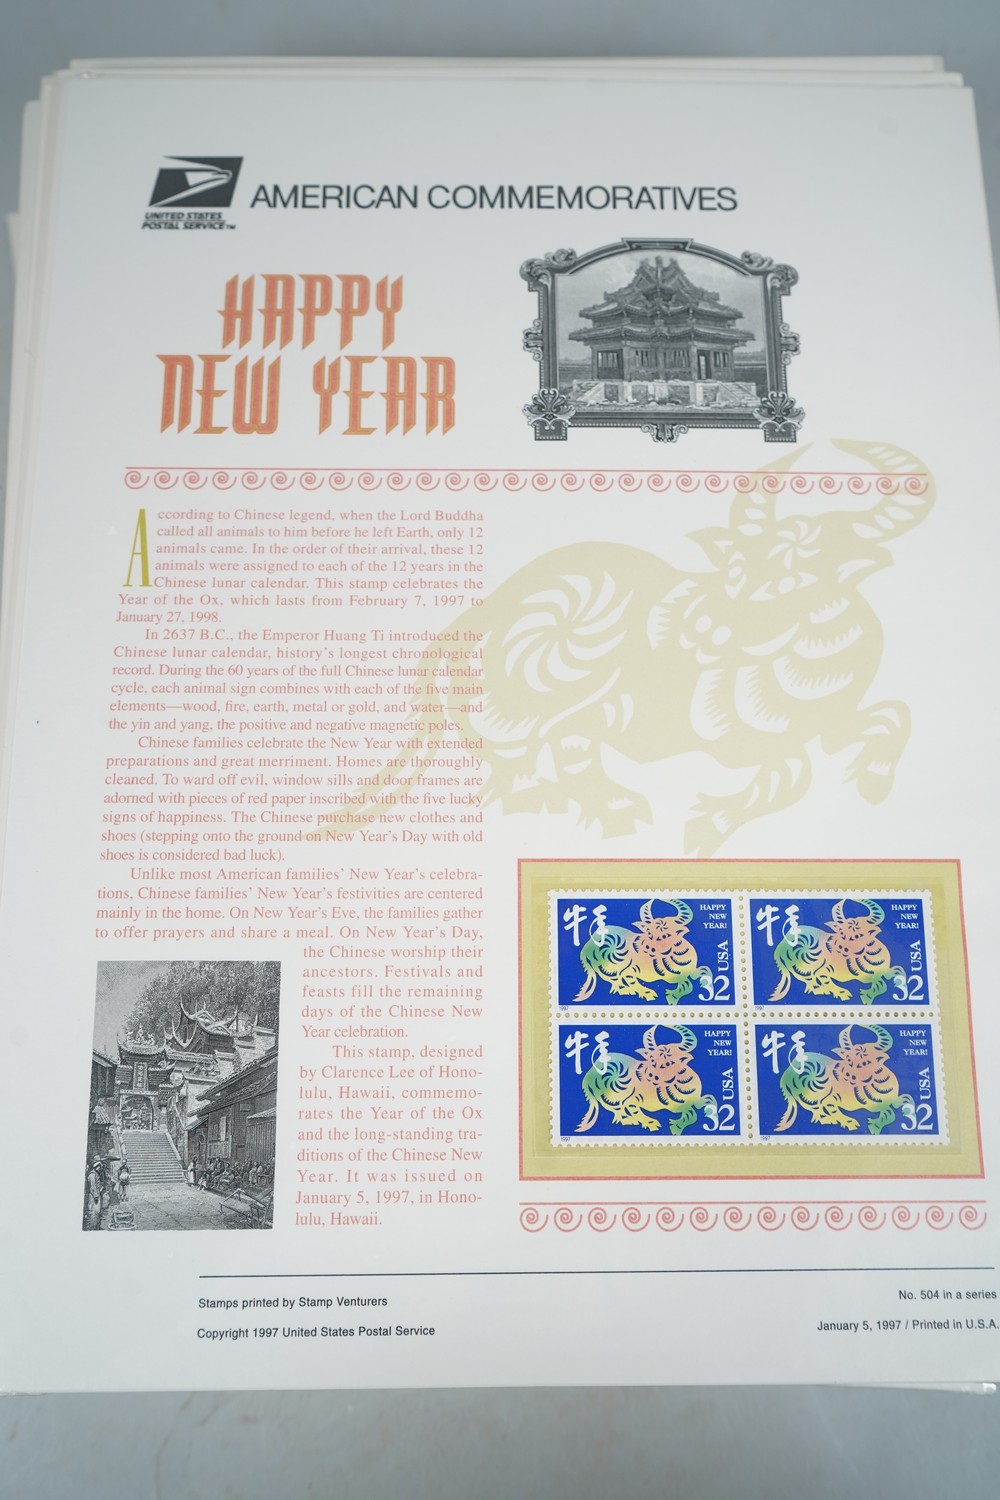 UNITED STATES
POSTAL SERVICE™
AMERICAN COMMEMORATIVES
HAPPY
NEW YEAR
According to Chinese legend, when the Lord Buddha
called all animals to him before he left Earth, only 12
animals came. In the order of their arrival, these 12
animals were assigned to each of the 12 years in the
Chinese lunar calendar. This stamp celebrates the
Year of the Ox, which lasts from February 7, 1997 to
January 27, 1998.
In 2637 B.C., the Emperor Huang Ti introduced the
Chinese lunar calendar, history's longest chronological
record. During the 60 years of the full Chinese lunar calendar
cycle, each animal sign combines with each of the five main
elements—wood, fire, earth, metal or gold, and water—and
the yin and yang, the positive and negative magnetic poles.
Chinese families celebrate the New Year with extended
preparations and great merriment. Homes are thoroughly
cleaned. To ward off evil, window sills and door frames are
adorned with pieces of red paper inscribed with the five lucky
signs of happiness. The Chinese purchase new clothes and
shoes (stepping onto the ground on New Year's Day with old
shoes is considered bad luck).
Unlike most American families' New Year's celebra-
tions, Chinese families' New Year's festivities are centered
mainly in the home. On New Year's Eve, the families gather
to offer prayers and share a meal. On New Year's Day,
the Chinese worship their
ancestors. Festivals and
feasts fill the remaining
days of the Chinese New
Year celebration.
This stamp, designed
by Clarence Lee of Hono-
lulu, Hawaii, commemo-
rates the Year of the Ox
and the long-standing tra-
ditions of the Chinese New
Year. It was issued on
January 5, 1997, in Hono-
lulu, Hawaii.
牛年
HAPPY
NEW
YEAR!
USA
32
1997
牛年
HAPPY
NEW
YEAR!
USA
32
1997
牛年
HAPPY
NEW
YEAR!
USA
32
1997
牛年
HAPPY
NEW
YEAR!
USA
32
1997
Stamps printed by Stamp Venturers
Copyright 1997 United States Postal Service
No. 504 in a series
January 5, 1997 / Printed in U.S.A.